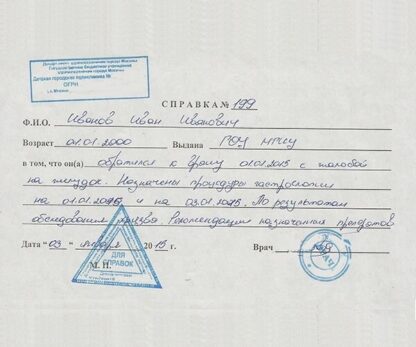 Департамент здравоохранения города Москвы
Государственное бюджетное учреждение
здравоохранения города Москвы
Детская городская поликлиника №
ОГРН
г. Москва
СПРАВКА № 199
Ф.И.О. Иванов Иван Иванович
Возраст 01.01.2000 Выдана РОУ
в том, что он(а) обратился к врачу 01.01.2015 с жалобой
на желудок. Назначены процедуры гастроскопии
на 01.01.2015 и на 03.01.2015. По результатам
обследования язва Рекомендации назначения препаратов
Дата "03" января 2015 г. Врач
ДЛЯ
СПРАВОК
М.П.
ВРАЧ